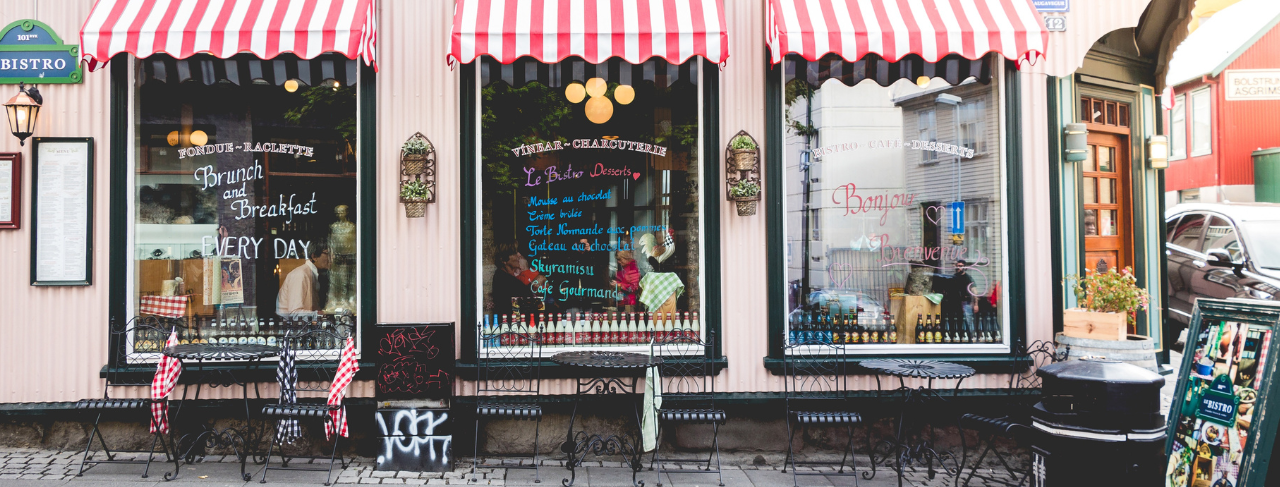 101ère
BISTRO
FONDUE ~ RACLETTE
Brunch
and
Breakfast
EVERY DAY
VÍNBAR ~ CHARCUTERIE
Le Bistro Desserts
Mousse au chocolat
Crème brûlée
Torte Normande avec pommes
Gateau au chocolat
Skyramisu
Café Gourmand
BISTRO ~ CAFE ~ DESSERTS
Bonjour
Bienvenue
LAUGAVEGUR
12
BOLSTRU
ASGRÍMS
LE BISTRO